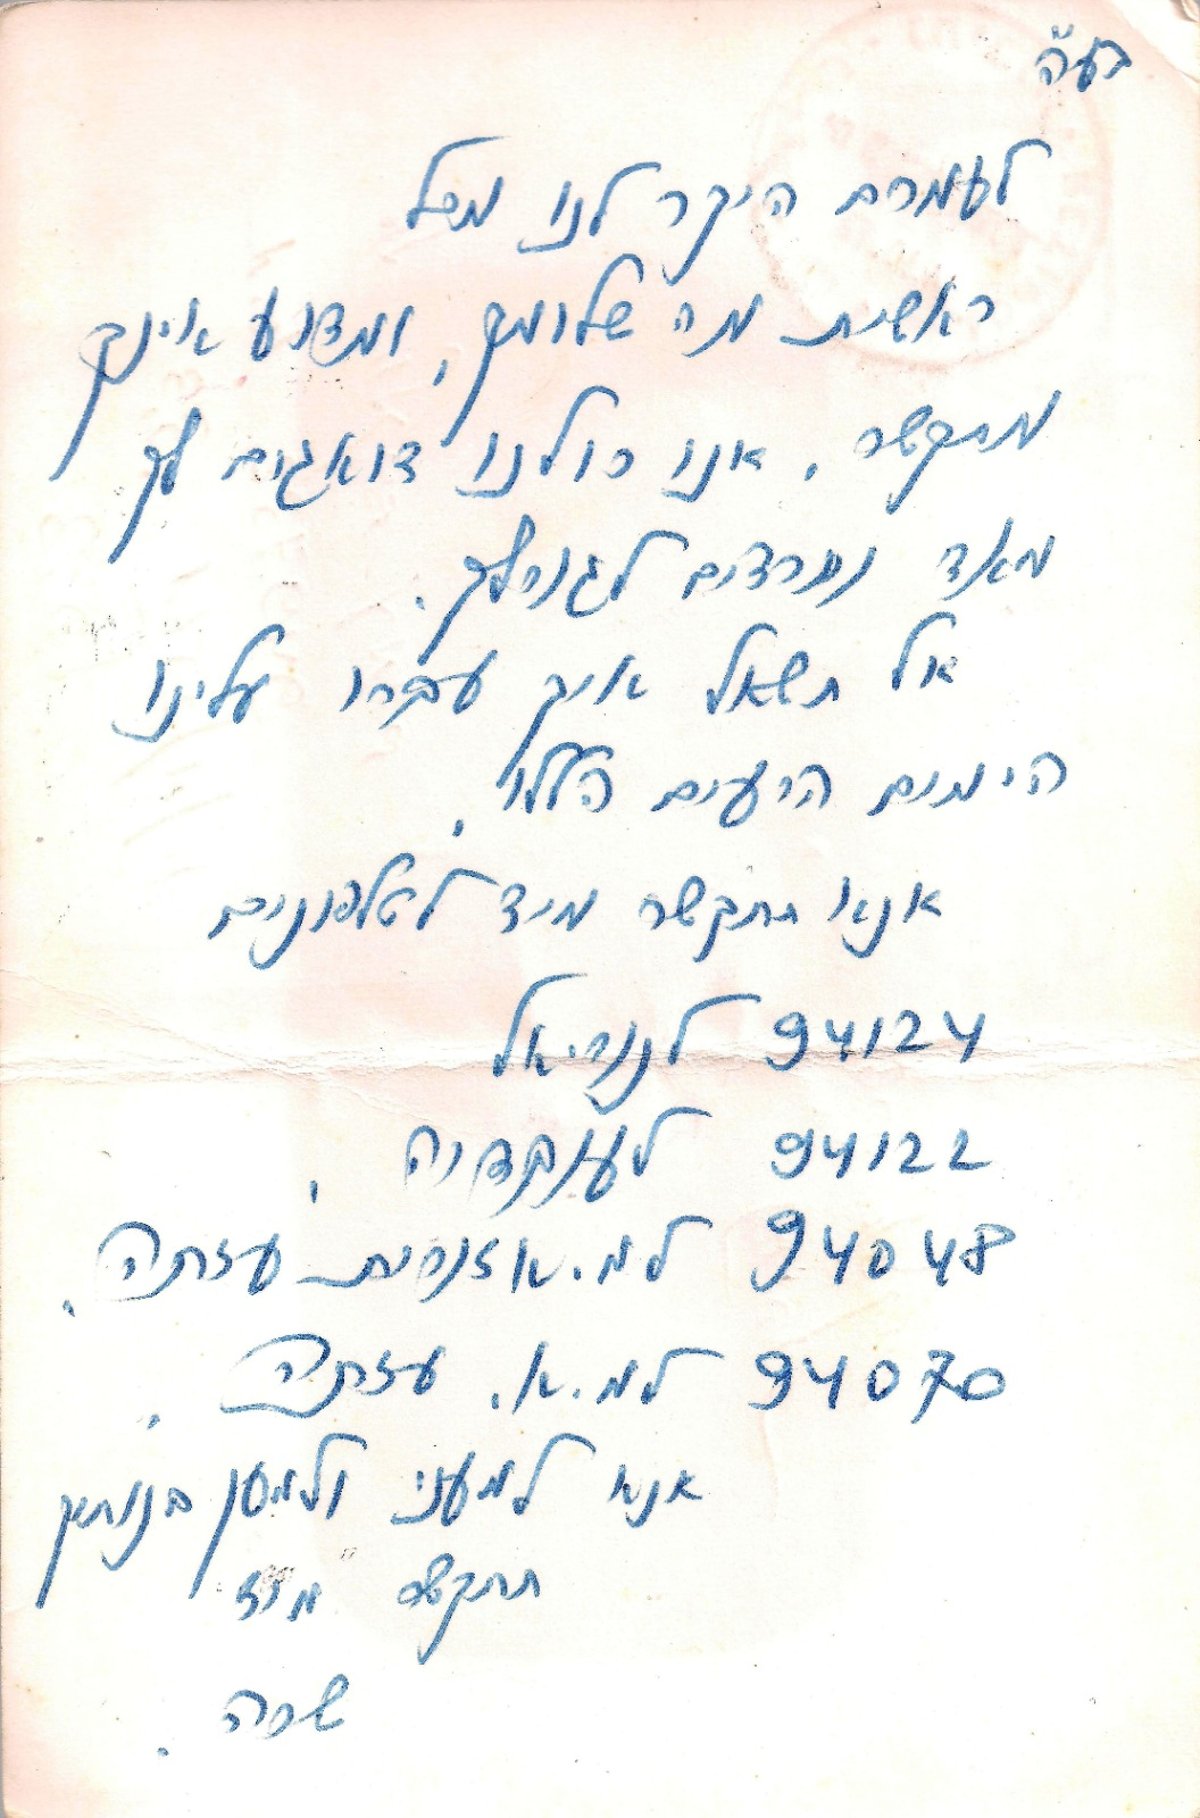 בעה"י
לעמרם היקר לנו מכל
ראשית מה שלומך, ומדוע אינך
מתקשר. אנו כולנו דואגים לך
מאד וחרדים לגורלך.
אל תשאל איך עברו עלינו
הימים הרעים הללו,
אנא תתקשר מיד לטלפונים
94124 לנוריאל
94122 לעובדיה,
94048 למ.אזורית עזתה,
94070 למ.א. עזתה,
אנא למעני ולמען בנותיך
תתקשר מיד
שרה.